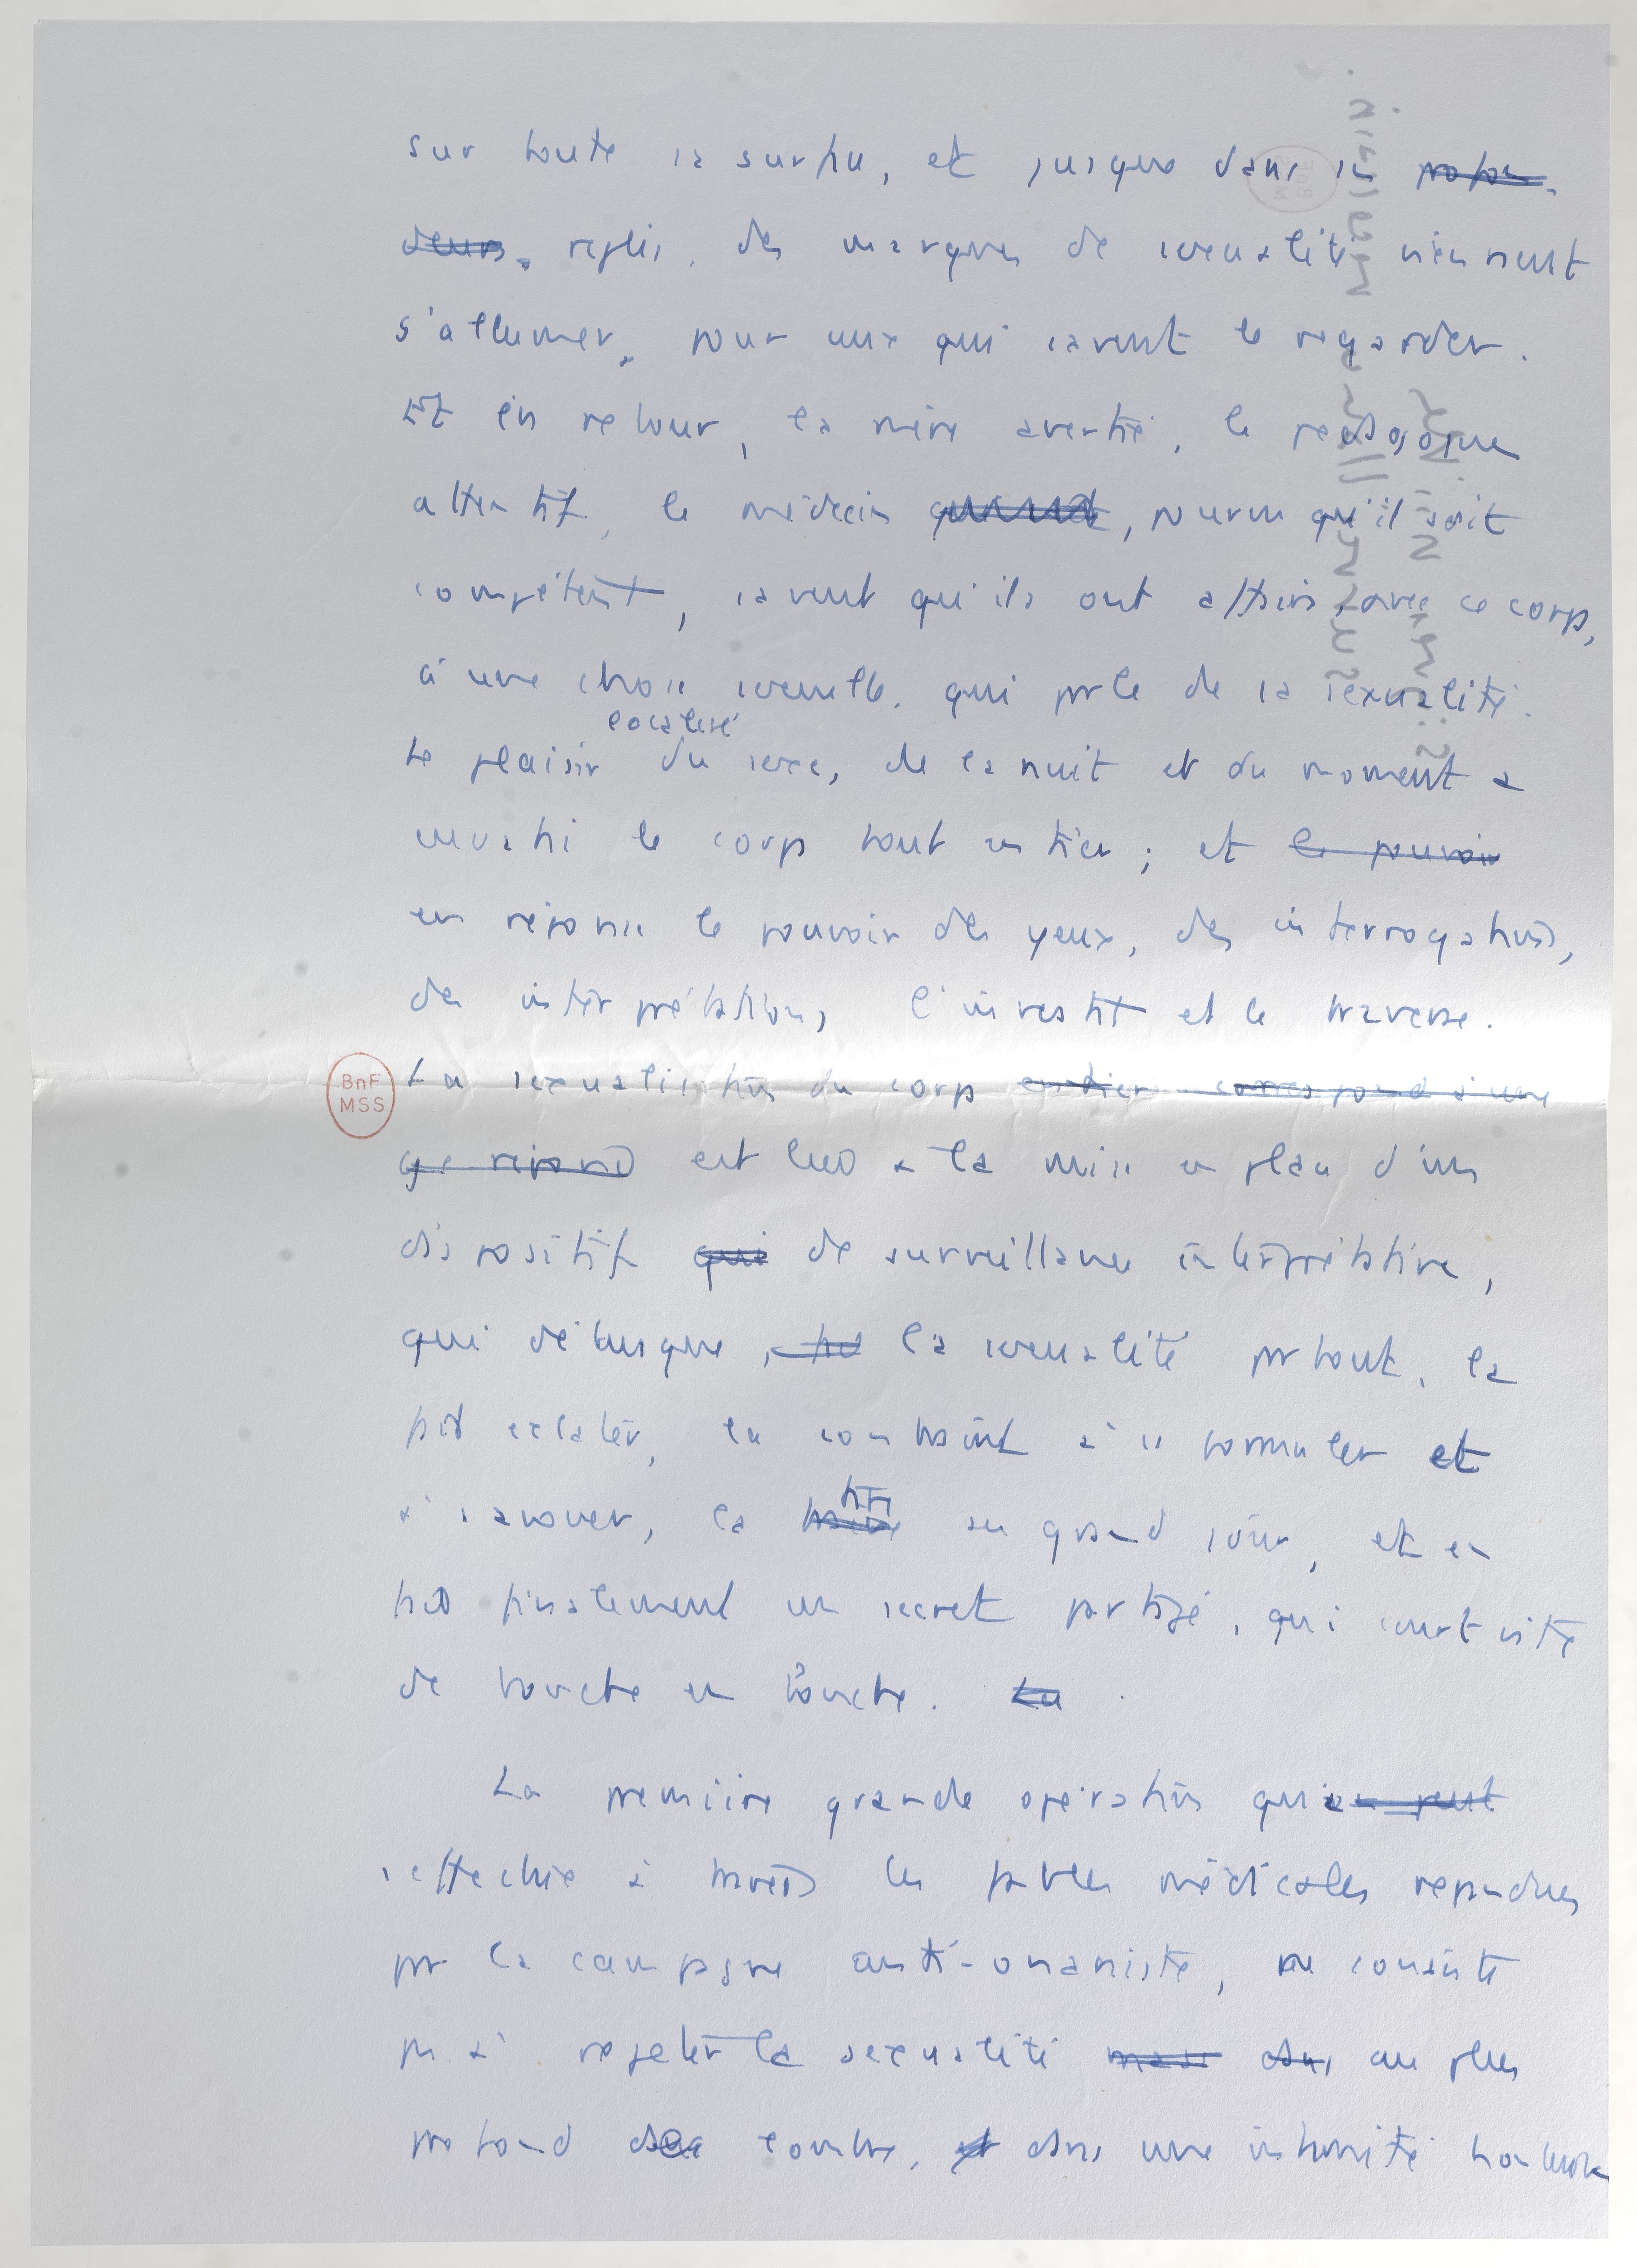 sur toute la surface, et jusque dans les profon-
deurs, replis, des marques de sexualité viennent
s'allumer, pour ceux qui savent le regarder.
Et en retour, la mère avertie, le pédagogue
attentif, le médecin, pourvu qu'il soit
compétent, savent qu'ils ont affaire, avec ce corps,
à une chose sexuelle, qui parle de la sexualité.
localisé
Le plaisir du sexe, de la nuit et du moment a
envahi le corps tout entier ; et le pouvoir
en réponse le pouvoir des yeux, des interrogations,
des interprétations, l'investit et le traverse.
BnF
MSS
La sexualisation du corps entier correspond à une
qui répond est liée à la mise en place d'un
dispositif qui de surveillance interprétative,
qui débusque, la sexualité partout, la
fait éclater, la contraint à se formuler et
à s'avouer, la tire au grand jour, et en
fait finalement un secret partagé, qui court vite
de bouche en bouche. La
La première grande opération qui en peut
s'effectue à travers les paroles médicales répandues
par la campagne anti-onaniste, ne consiste
pas à rejeter la sexualité mais dans au plus
profond de l'ombre, et dans une intimité honteuse